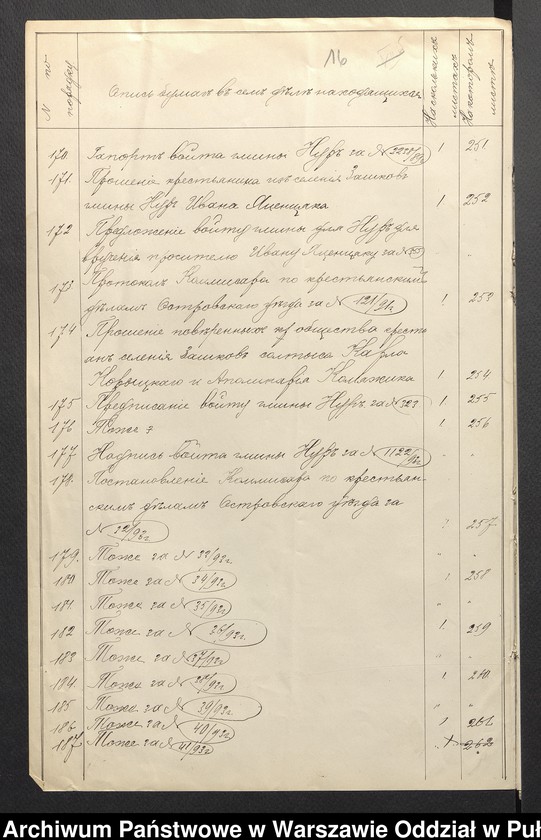 16
№ по порядку
Опись бумагъ въ семъ дѣлѣ находящихся
На сколькихъ листахъ
На которомъ листѣ
170. Рапортъ войта гмины Нуръ за № 1 251
171. Прошеніе крестьянина изъ селенія Зашковъ
гмины Нуръ Ивана 1 252
172 Предложеніе войту гмины Нуръ для
врученія просителю Ивану за № " "
173 Протоколъ Коммисара по крестьянскимъ
дѣламъ Островскаго уѣзда за № 121/91г. 1 253
174 Прошеніе повѣренныхъ общества кресть
анъ селенія Зашковъ солтыса Карла
и Аполинарія 1 254
175 Предписаніе войту гмины Нуръ за № 323 1 255
176 Тоже 1 256
177 Надпись войта гмины Нуръ за № 1122/92г " "
178. Постановленіе Коммисара по крестьян-
скимъ дѣламъ Островскаго уѣзда за
№ 32/93г 257
179. Тоже за № 33/93г. " "
180 Тоже за № 34/93г 258
181. Тоже за № 35/93г " "
182 Тоже за № 36/93г. 1. 259
183 Тоже за № 37/93г " "
184. Тоже за № 38/93г 1 260
185 Тоже за № 39/93г. " "
186 Тоже за № 40/93г 1 261
187 Тоже за № 41/93г 262
Archiwum Państwowe w Warszawie Oddział w Puł